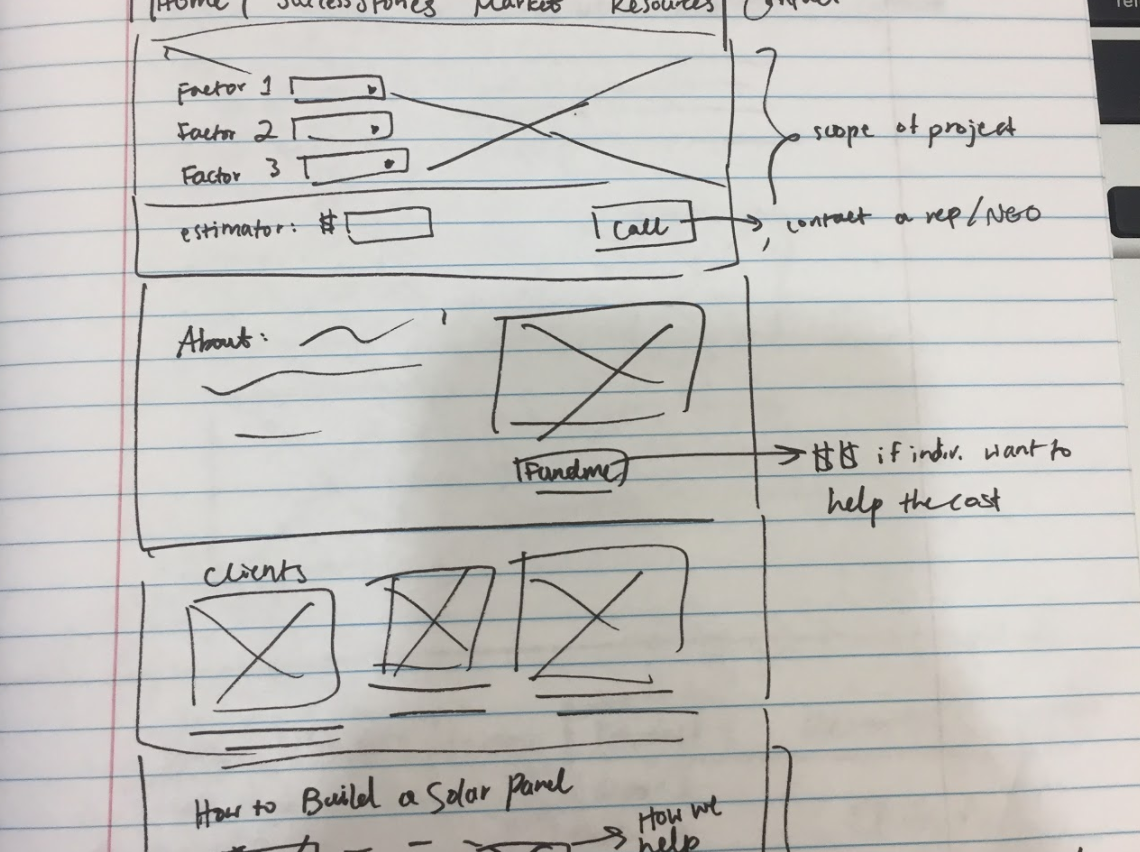 Home Success Stories Market Resources Contact
Factor 1
Factor 2
Factor 3
scope of project
estimator: $
Call
contact a rep/NGO
About:
Fundme
$$ if indiv. want to
help the cost
Clients
How to Build a Solar Panel
How we
help